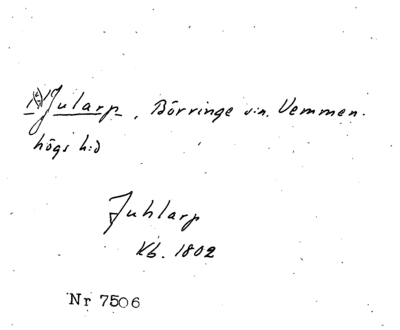 Jularp, Börringe s:n, Vemmen-
högs h:d
Juhlarp
Kb. 1802
Nr 7506